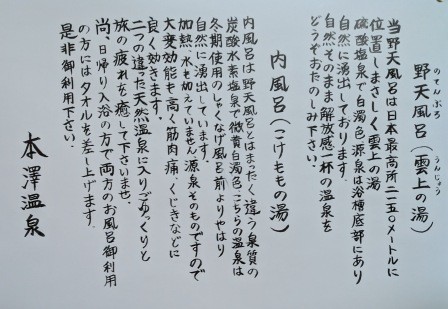 野天風呂(雲上の湯)
のてんぶろ うんじょう
当野天風呂は日本最高所二一五〇メートルに
位置しまさしく雲上の湯
硫酸塩泉で白濁色源泉は浴槽底部にあり
自然に湧出しております.
自然そのまま解放感一杯の温泉を
どうぞおたのしみ下さい.
内風呂(こけももの湯)
内風呂は野天風呂とはまったく違う泉質の
炭酸水素塩泉で微黄白濁色こちらの温泉は
冬期使用のしゃくなげ風呂前よりやはり
自然に湧出しています.
加熱、水も加えていません源泉そのものですので
大変効能も高く筋肉痛・くじきなどに
良く効きます.
二つの違った天然温泉に入りごゆっくりと
旅の疲れを癒して下さいませ.
尚、日帰り入浴の方で両方のお風呂御利用
の方にはタオルを差し上げます.
是非御利用下さい.
本澤温泉